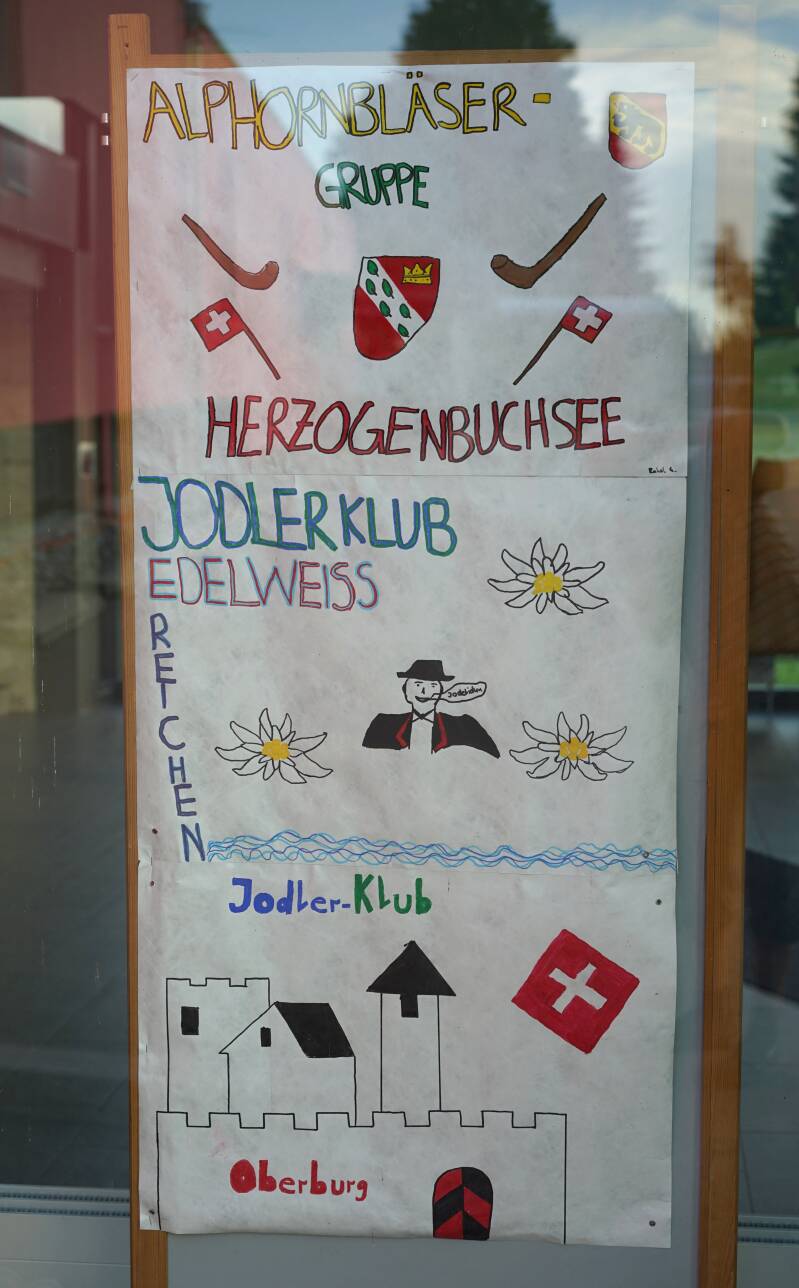 ALPHORNBLÄSER-
GRUPPE
HERZOGENBUCHSEE
JODLERKLUB
EDELWEISS
RETCHEN
Jodler-Klub
Oberburg